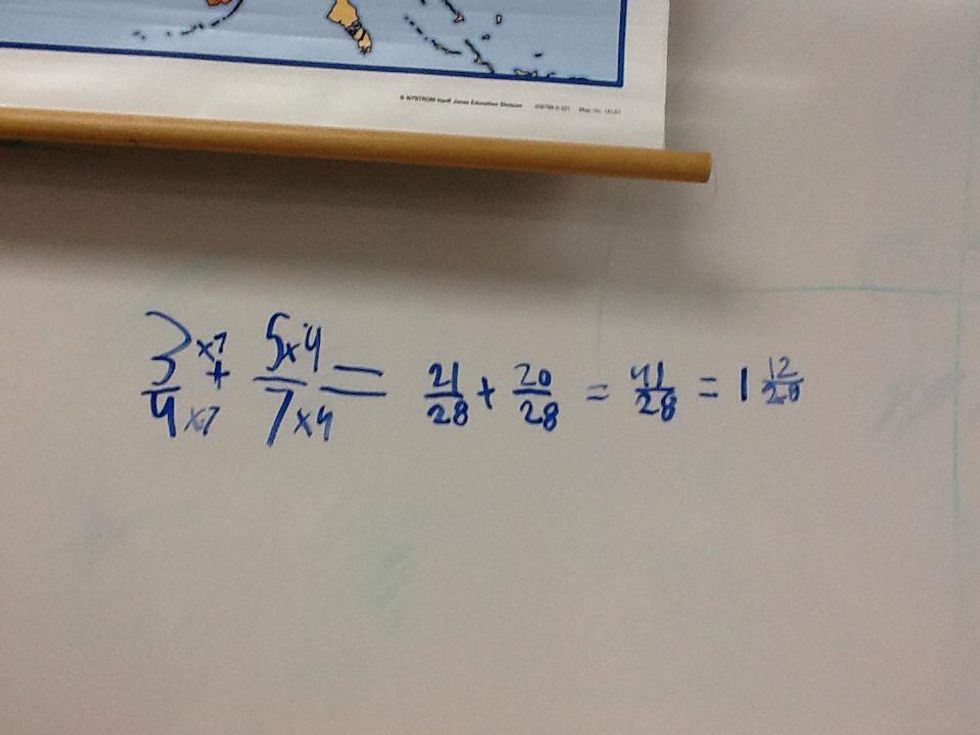 © NYSTROM Herff Jones Education Division
3×7/4×7 + 5×4/7×4 = 21/28 + 20/28 = 41/28 = 1 12/28